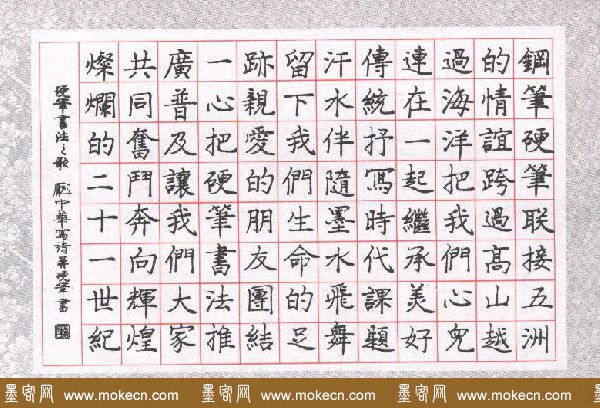 鋼筆硬筆聯接五洲
的情誼跨過高山越
過海洋把我們心兒
連在一起繼承美好
傳統抒寫時代課題
汗水伴隨墨水飛舞
留下我們生命的足
跡親愛的朋友團結
一心把硬筆書法推
廣普及讓我們大家
共同奮鬥奔向輝煌
燦爛的二十一世紀
硬筆書法之歌 龐中華寫詩並硬筆書
墨客网 www.mokecn.com 墨客网 www.mokecn.com 墨客网 www.mokecn.com